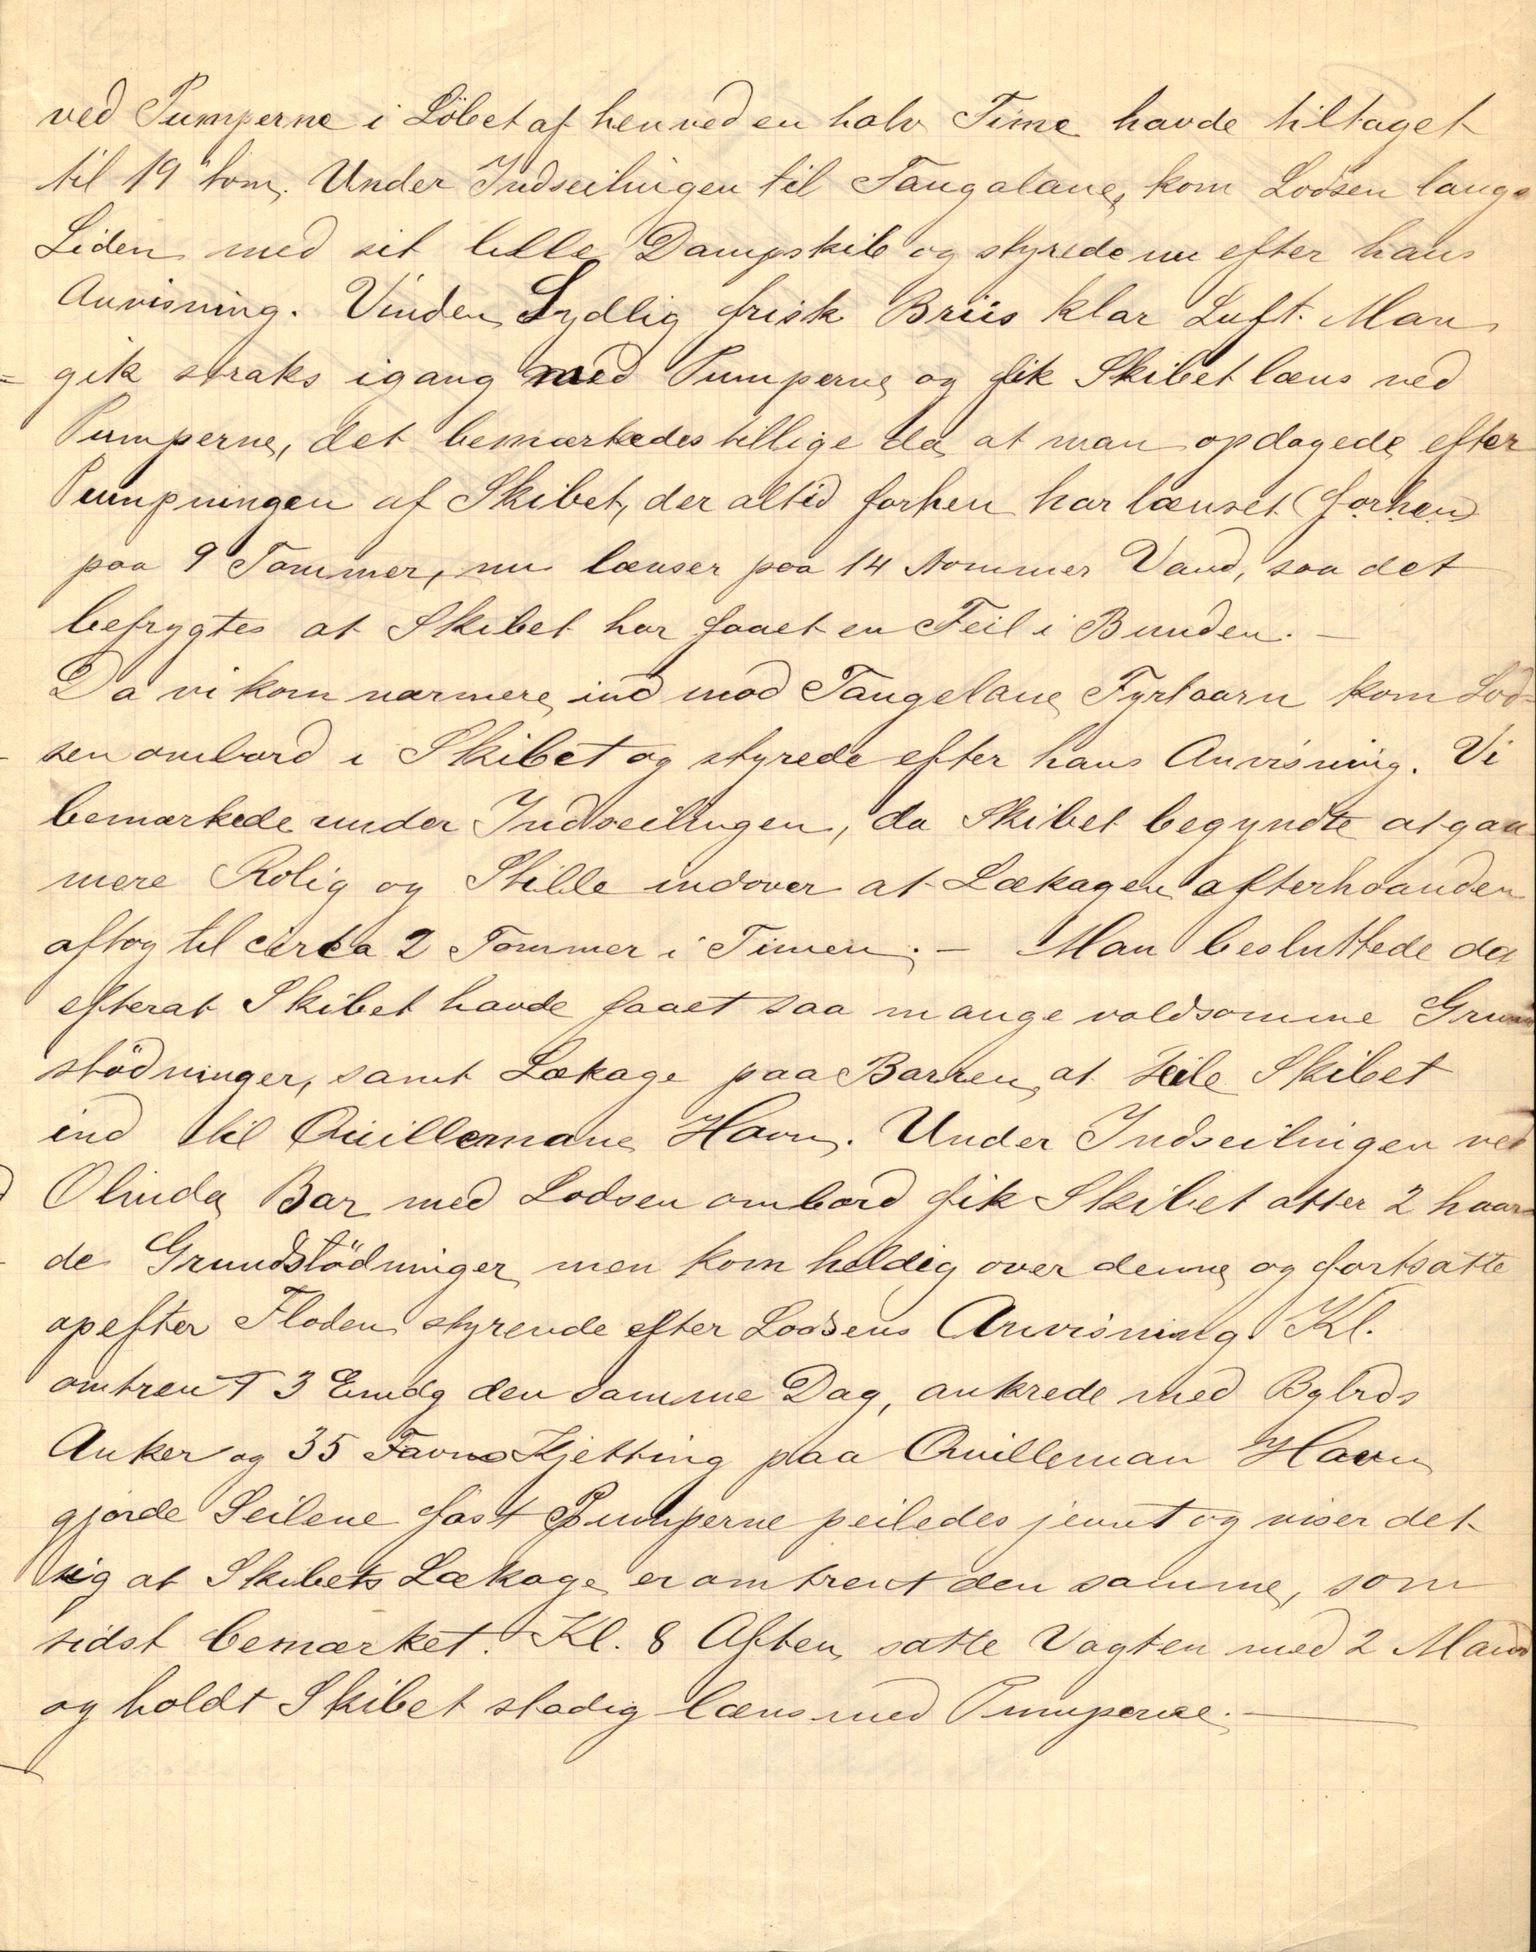 ved Pumperne i Löbet af henved en halv Time havde tiltaget
til 19" tom. Under Indseilingen til Tangalane, kom Lodsen langs
Siden med sit lille Dampskib og styrede nu efter hans
Anvisning. Vinden Sydlig frisk Briis klar Luft. Man
gik straks igang med Pumperne og fik Skibet læns ved
Pumperne, det bemærkedes tillige da, at man opdagede efter
Pumpningen af Skibet, der altid forhen har lænset (forhen)
paa 9 Tommer, nu lænser paa 14 tommer Vand, saa det
befrygtes at Skibet har faaet en Feil i Bunden. —
Da vi kom nærmere ind mod Tangelane Fyrtaarn kom Lod=
sen ombord i Skibet og styrede efter hans Anvisning. Vi
bemærkede under Indseilingen, da Skibet begyndte at gaa
mere Rolig og Stille indover at Lækagen efterhaanden
aftog til cirka 2 Tommer i Timen. — Man besluttede da
efterat Skibet havde faaet saa mange voldsomme Grund
stödninger, samt Lækage paa Barren, at seile Skibet
ind til Quillemane Havn. Under Indseilingen ved
Olinda Bar med Lodsen ombord fik Skibet atter 2 haar=
de Grundstödninger men kom heldig over denne og fortsatte
opefter Floden styrende efter Lodsens Anvisning. Kl.
omtrent 3 Emdg den samme Dag, ankrede med Bgbrds
Anker og 35 Favne Kjetting paa Quilleman Havn
gjorde Seilene fast Pumperne peiledes jevnt og viser det
sig at Skibets Lækage er omtrent den samme, som
sidst bemærket. Kl. 8 Aften satte Vagten med 2 Mand
og holdt Skibet stadig læns med Pumperne. —